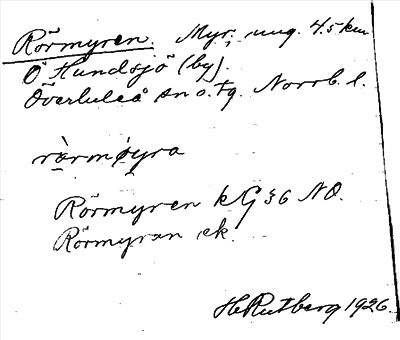 Rörmyren. Myr, ung. 4.5 km
Ö Hundsjö (by).
Överluleå sn o. tg. Norrb. l.
rörmøyra
Rörmyren kG 36 NO.
Rörmyran ek.
H Rutberg 1926.